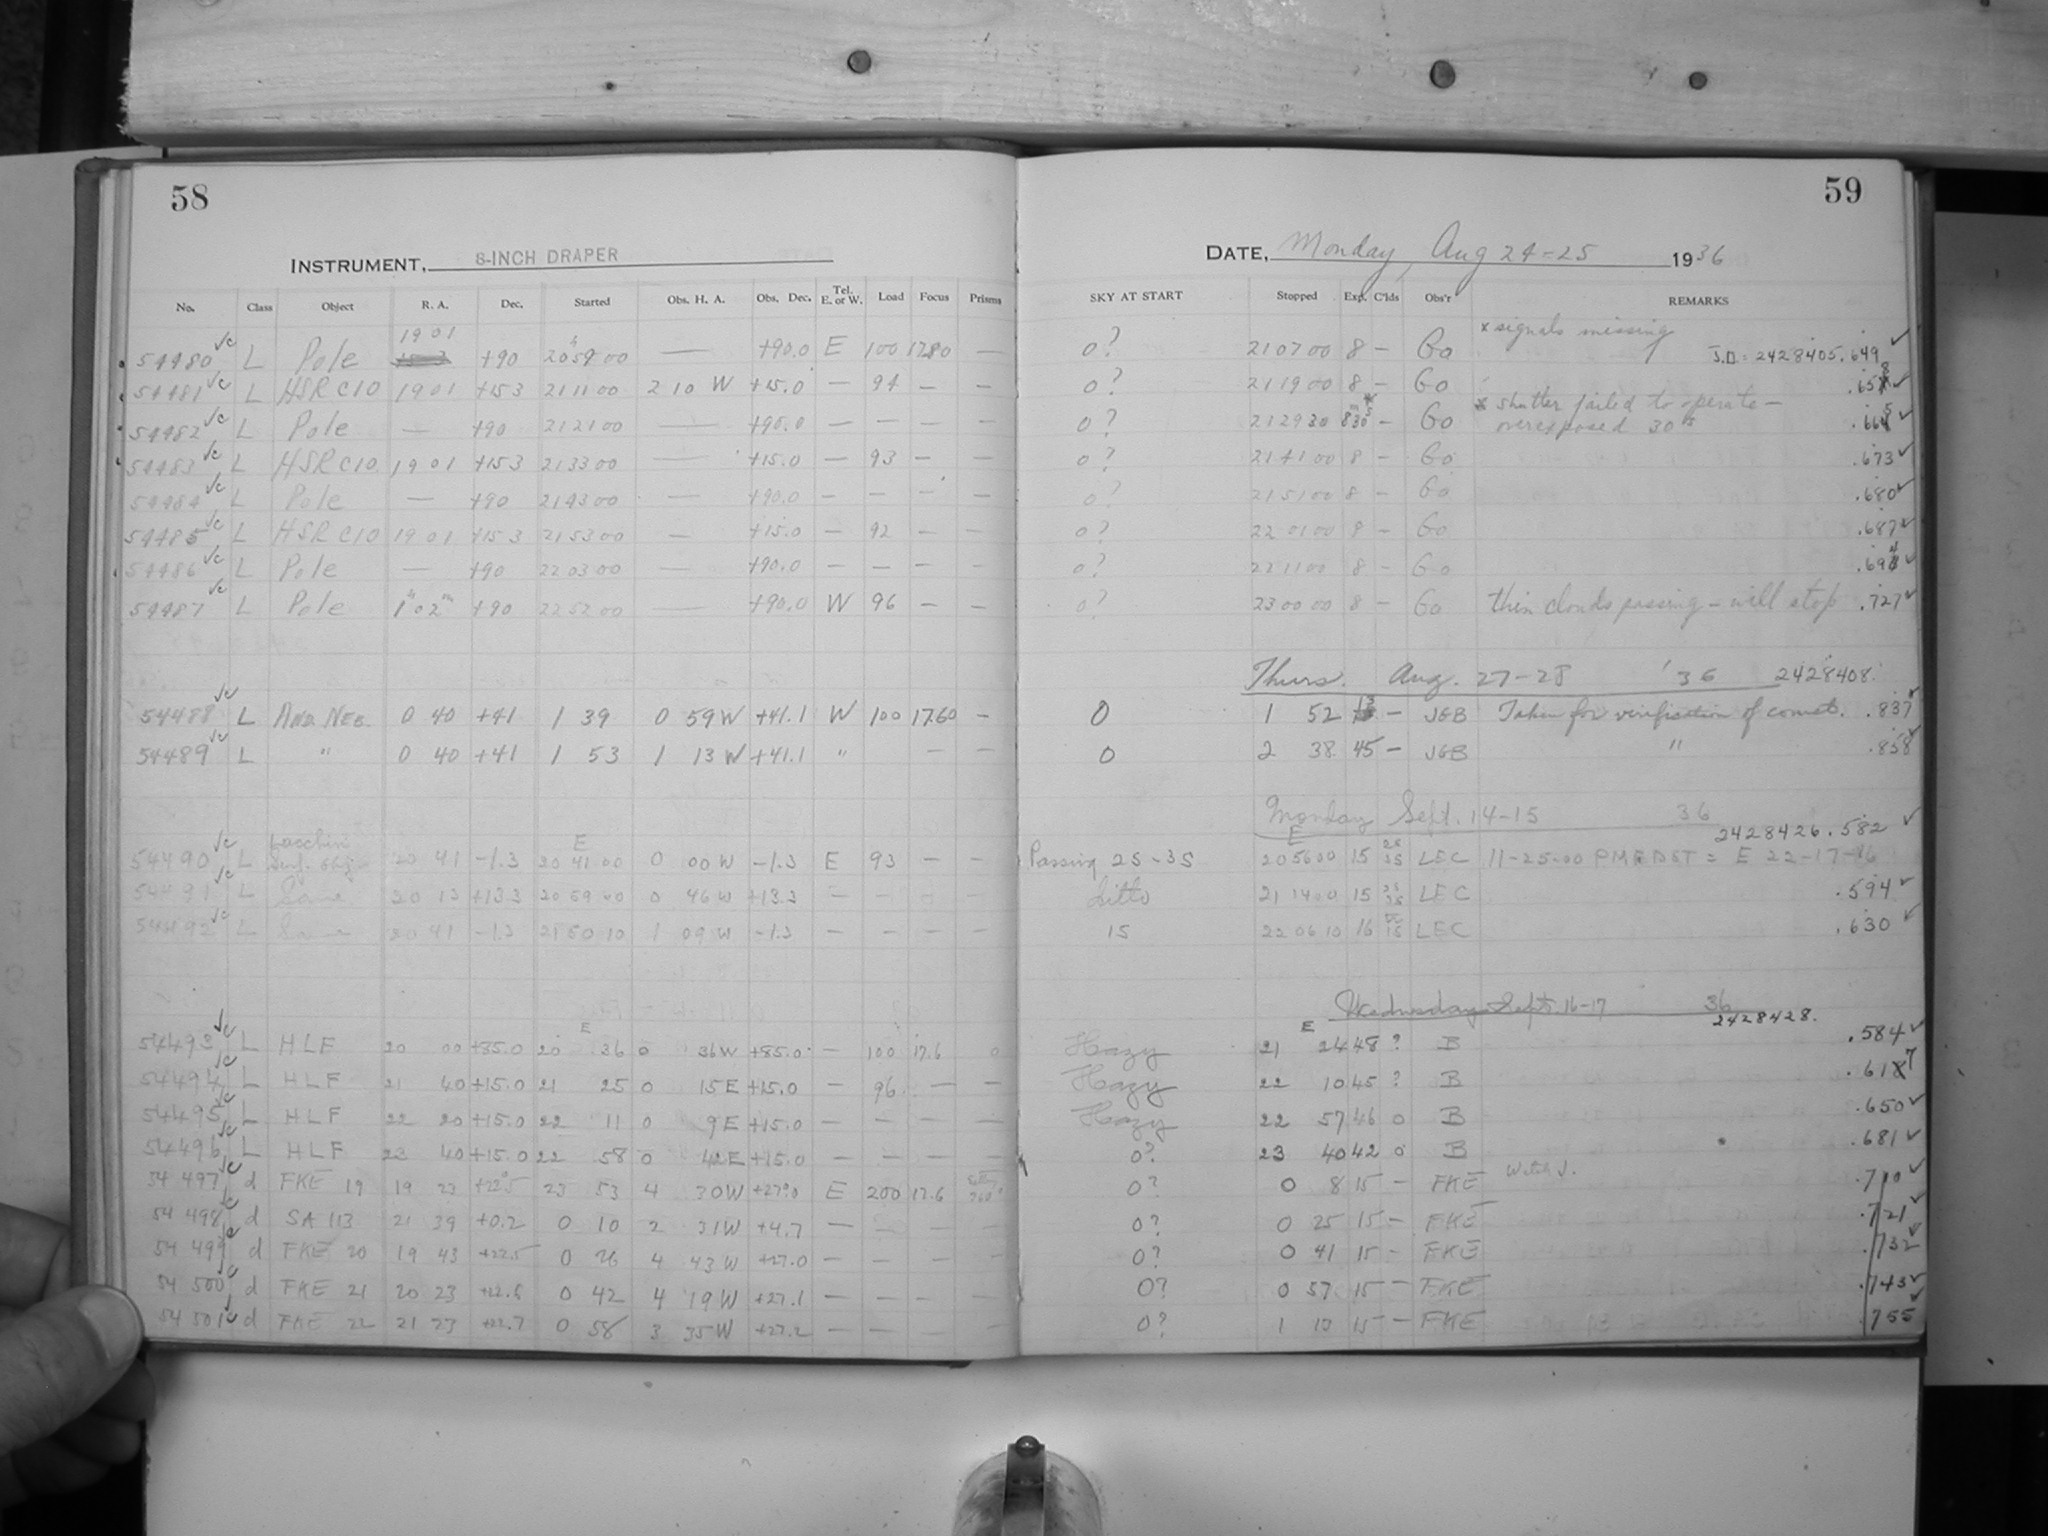 58
INSTRUMENT, 8-INCH DRAPER
No. Class Object R. A. Dec. Started Obs. H. A. Obs. Dec. Tel. E. or W. Load Focus Prisms
19 01
54480 L Pole +90 20 59 00 — +90.0 E 100 1780 —
54481 L HSR C10 19 01 +15 3 21 11 00 2 10 W +15.0 — 94 — —
54482 L Pole — +90 21 21 00 — +90.0 — — — —
54483 L HSR C10 19 01 +15 3 21 33 00 — +15.0 — 93 — —
54484 L Pole — +90 21 43 00 — +90.0 — — — —
54485 L HSR C10 19 01 +15 3 21 53 00 — +15.0 — 92 — —
54486 L Pole — +90 22 03 00 — +90.0 — — — —
54487 L Pole 1h 02m +90 22 52 00 — +90.0 W 96 — —
54488 L AND NEB. 0 40 +41 1 39 0 59 W +41.1 W 100 1760 —
54489 L " 0 40 +41 1 53 1 13 W +41.1 " — —
E
54490 L 20 41 -1.3 20 41 00 0 00 W -1.3 E 93 — —
54491 L Same 20 13 +13.3 20 59 00 0 46 W +13.3 — — — —
54492 L Same 20 41 -1.3 21 50 10 1 09 W -1.3 — — — —
E
54493 L HLF 20 00 +85.0 20 36 0 36 W +85.0 — 100 17.6 0
54494 L HLF 21 40 +15.0 21 25 0 15 E +15.0 — 96 — —
54495 L HLF 22 20 +15.0 22 11 0 9 E +15.0 — — — —
54496 L HLF 23 40 +15.0 22 58 0 42 E +15.0 — — — —
54 497 d FKE 19 19 23 +22.5 23 53 4 30 W +27.0 E 200 17.6
54 498 d SA 113 21 39 +0.2 0 10 2 31 W +4.7 — — — —
54 499 d FKE 20 19 43 +22.5 0 26 4 43 W +27.0 — — — —
54 500 d FKE 21 20 23 +22.6 0 42 4 19 W +27.1 — — — —
54 501 d FKE 22 21 23 +22.7 0 58 3 35 W +27.2 — — — —
59
DATE, Monday, Aug 24-25 1936
SKY AT START Stopped Exp. C'lds Obs'r REMARKS
x signals missing
0? 21 07 00 8 — Go J.D. = 2428405.649
0? 21 19 00 8 — Go .658
x shutter failed to operate —
0? 21 29 30 8m 30s — Go overexposed 30s .665
0? 21 41 00 8 — Go .673
0? 21 51 00 8 — Go .680
0? 22 01 00 8 — Go .687
0? 22 11 00 8 — Go .694
0? 23 00 00 8 — Go thin clouds passing — will stop .727
Thurs. Aug. 27-28 '36 2428408.
0 1 52 13 — JGB Taken for verification of comet. .837
0 2 38 45 — JGB " .858
Monday Sept. 14-15 36
E 2428426.582
Passing 2S-3S 20 56 00 15 2S 3S LEC 11-25-00 PM EDST = E 22-17-16
Ditto 21 14 00 15 2S 3S LEC .594
1S 22 06 10 16 LEC .630
Wednesday Sept. 16-17 36
E 2428428.
Hazy 21 24 48 ? B .584
Hazy 22 10 45 ? B .617
Hazy 22 57 46 0 B .650
0? 23 40 42 0 B .681
0? 0 8 15 — FKE With J. .710
0? 0 25 15 — FKE .721
0? 0 41 15 — FKE .732
0? 0 57 15 — FKE .743
0? 1 13 15 — FKE .755